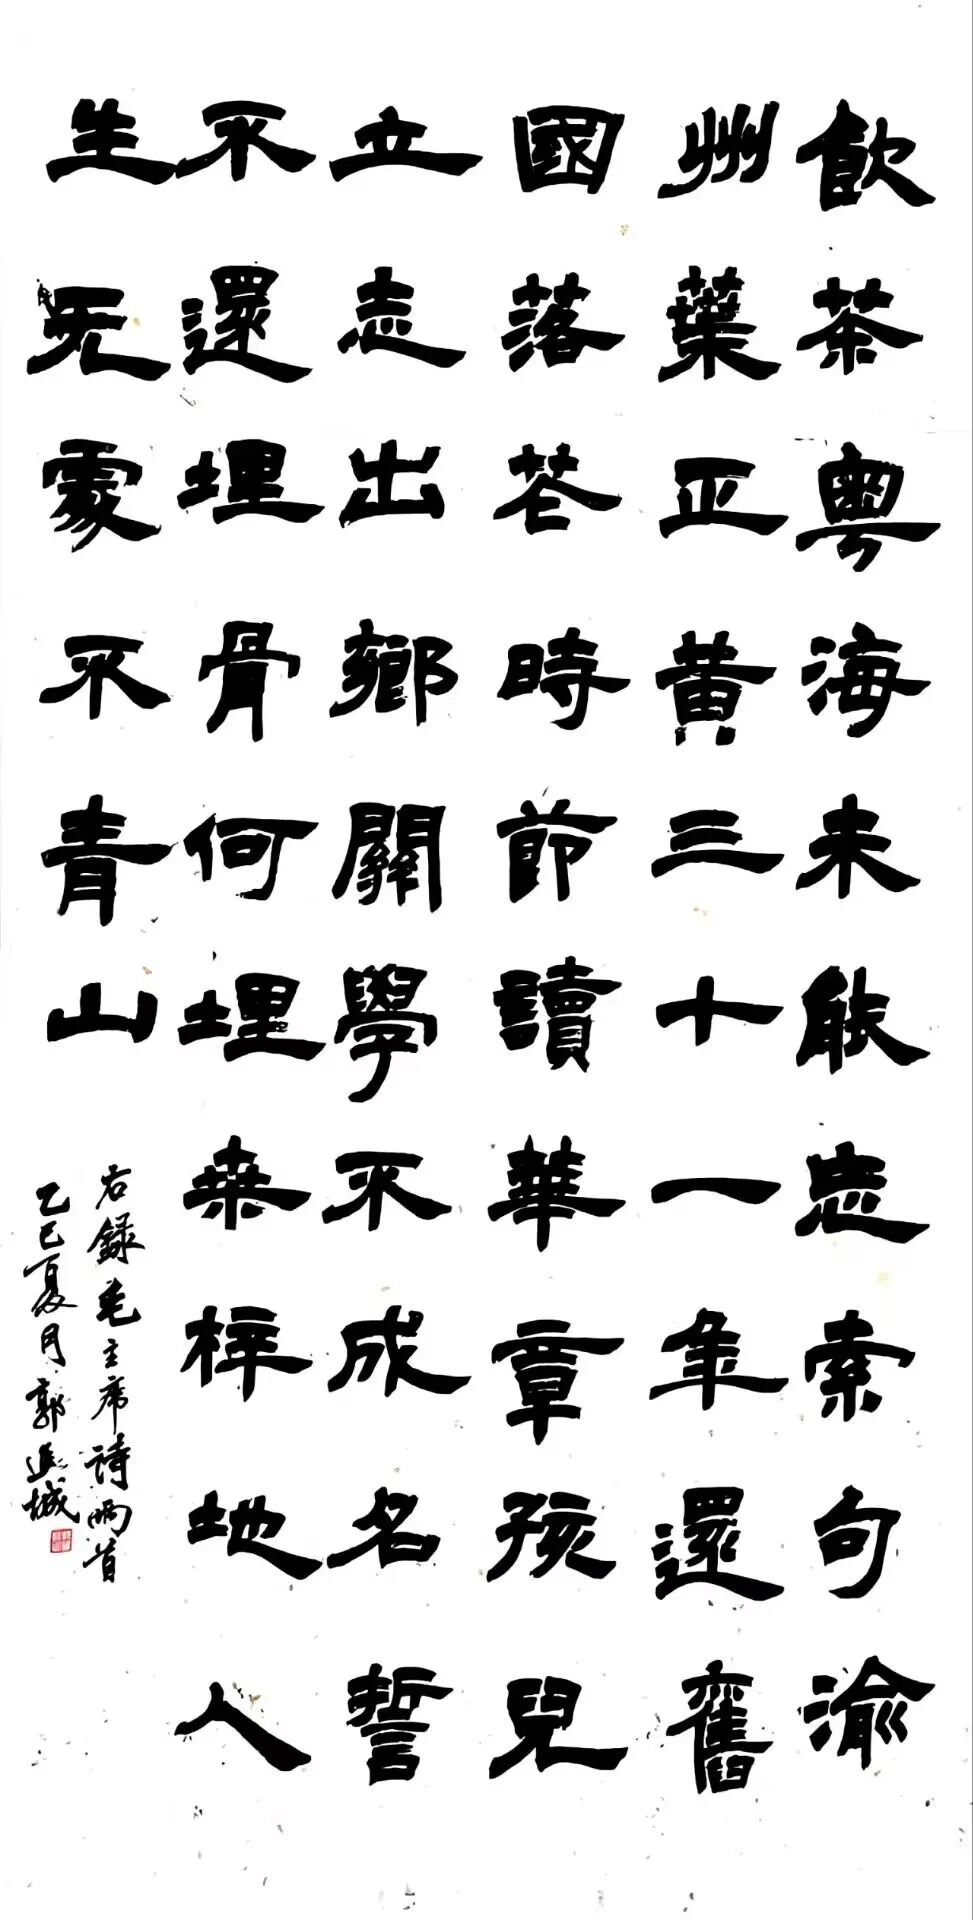 飲茶粵海未能忘索句渝
州葉正黃三十一年還舊
國落花時節讀華章孩兒
立志出鄉關學不成名誓
不還埋骨何埋桑梓地人
生无處不青山
右錄毛主席詩兩首
乙巳夏月郭進城